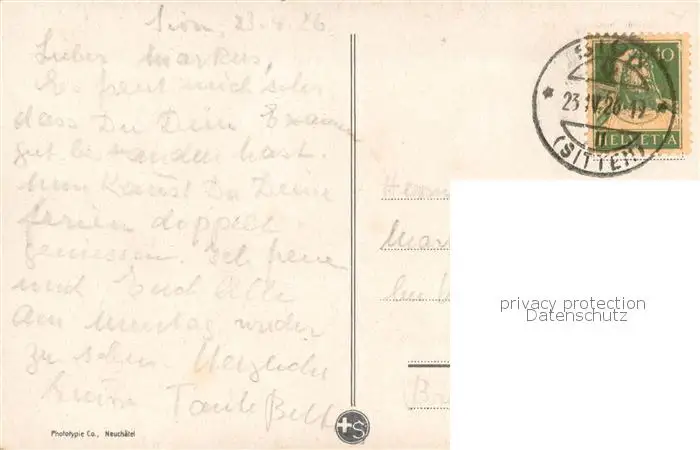 Sion, 23.4.26.
Lieber Markus,
Es freut mich sehr
dass Du Dein Examen
gut bestanden hast.
Nun kannst Du Deine
Ferien doppelt
geniessen. Ich freue
mich Euch Alle
am Montag wieder
zu sehen. Herzlich
Tante
Phototypie Co., Neuchâtel
+S
Herrn
SION
10
23 IV 26-19
HELVETIA
II
(SITTEN)
privacy protection
Datenschutz